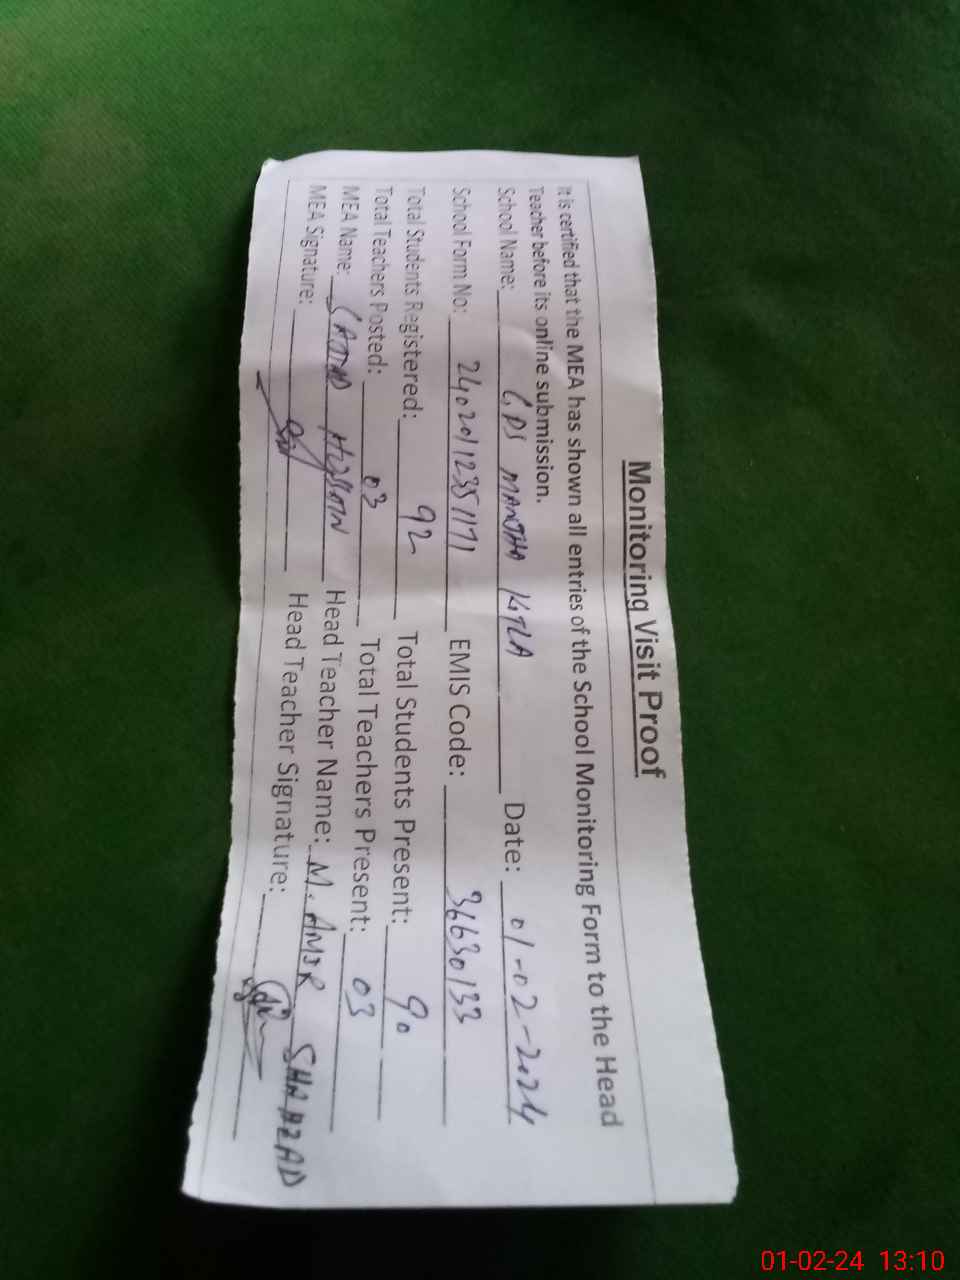 Monitoring Visit Proof
It is certified that the MEA has shown all entries of the School Monitoring Form to the Head
Teacher before its online submission.
School Name: GPS MANJHA KTLA Date: 01-02-2024
School Form No: 24020112351171 EMIS Code: 36630133
Total Students Registered: 92 Total Students Present: 90
Total Teachers Posted: 03 Total Teachers Present: 03
MEA Name: SAJJAD HUSSAIN Head Teacher Name: M. AMIR SHAHZAD
MEA Signature: Head Teacher Signature:
01-02-24 13:10